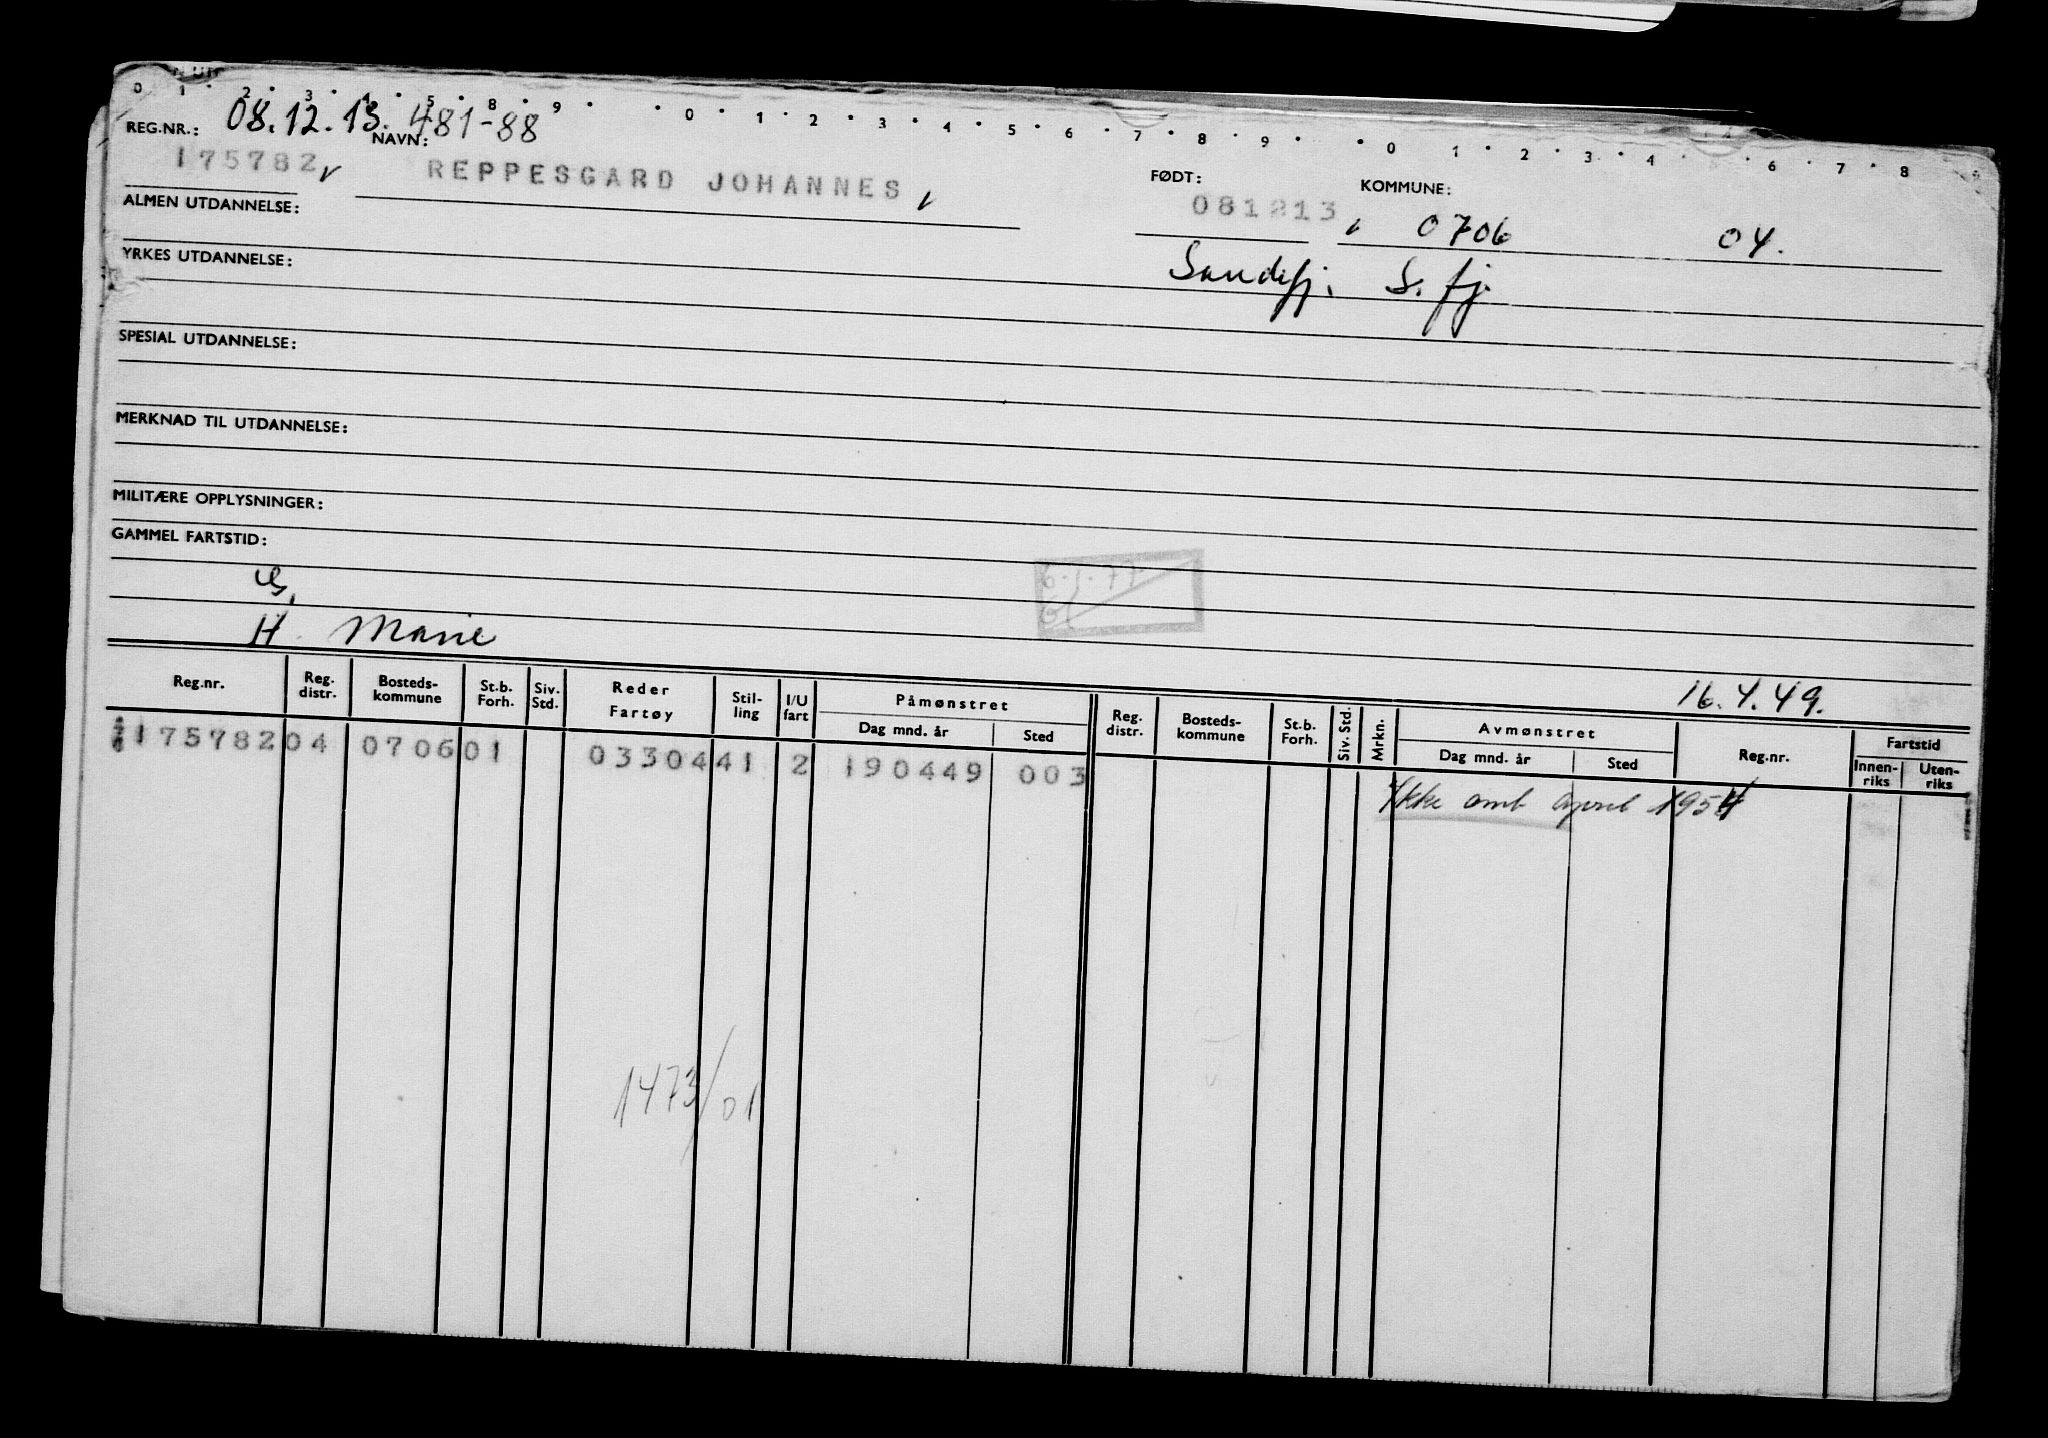 0 1 2 3 4 5 8 9 0 1 2 3 4 5 6 7 8 9 0 1 2 3 4 6 7 8
REG.NR.: 08.12.13. 481-88
NAVN: FØDT: KOMMUNE:
175782 REPPESGARD JOHANNES 081213 0706 04.
ALMEN UTDANNELSE:
Sandefj. S. fj.
YRKES UTDANNELSE:
SPESIAL UTDANNELSE:
MERKNAD TIL UTDANNELSE:
MILITÆRE OPPLYSNINGER:
GAMMEL FARTSTID:
6.1.77
H. Marie
16.4.49.
Reg.nr. Reg. distr. Bosteds-kommune St.b. Forh. Siv. Std. Reder Fartøy Stil-ling I/U fart Påmønstret Dag mnd. år Sted Reg. distr. Bosteds-kommune St.b. Forh. Siv. Std. Mrkn. Avmønstret Dag mnd. år Sted Reg.nr. Fartstid Innen-riks Uten-riks
175782 04 0706 01 03304 41 2 190449 003
Ikke omb april 1954
1473/01